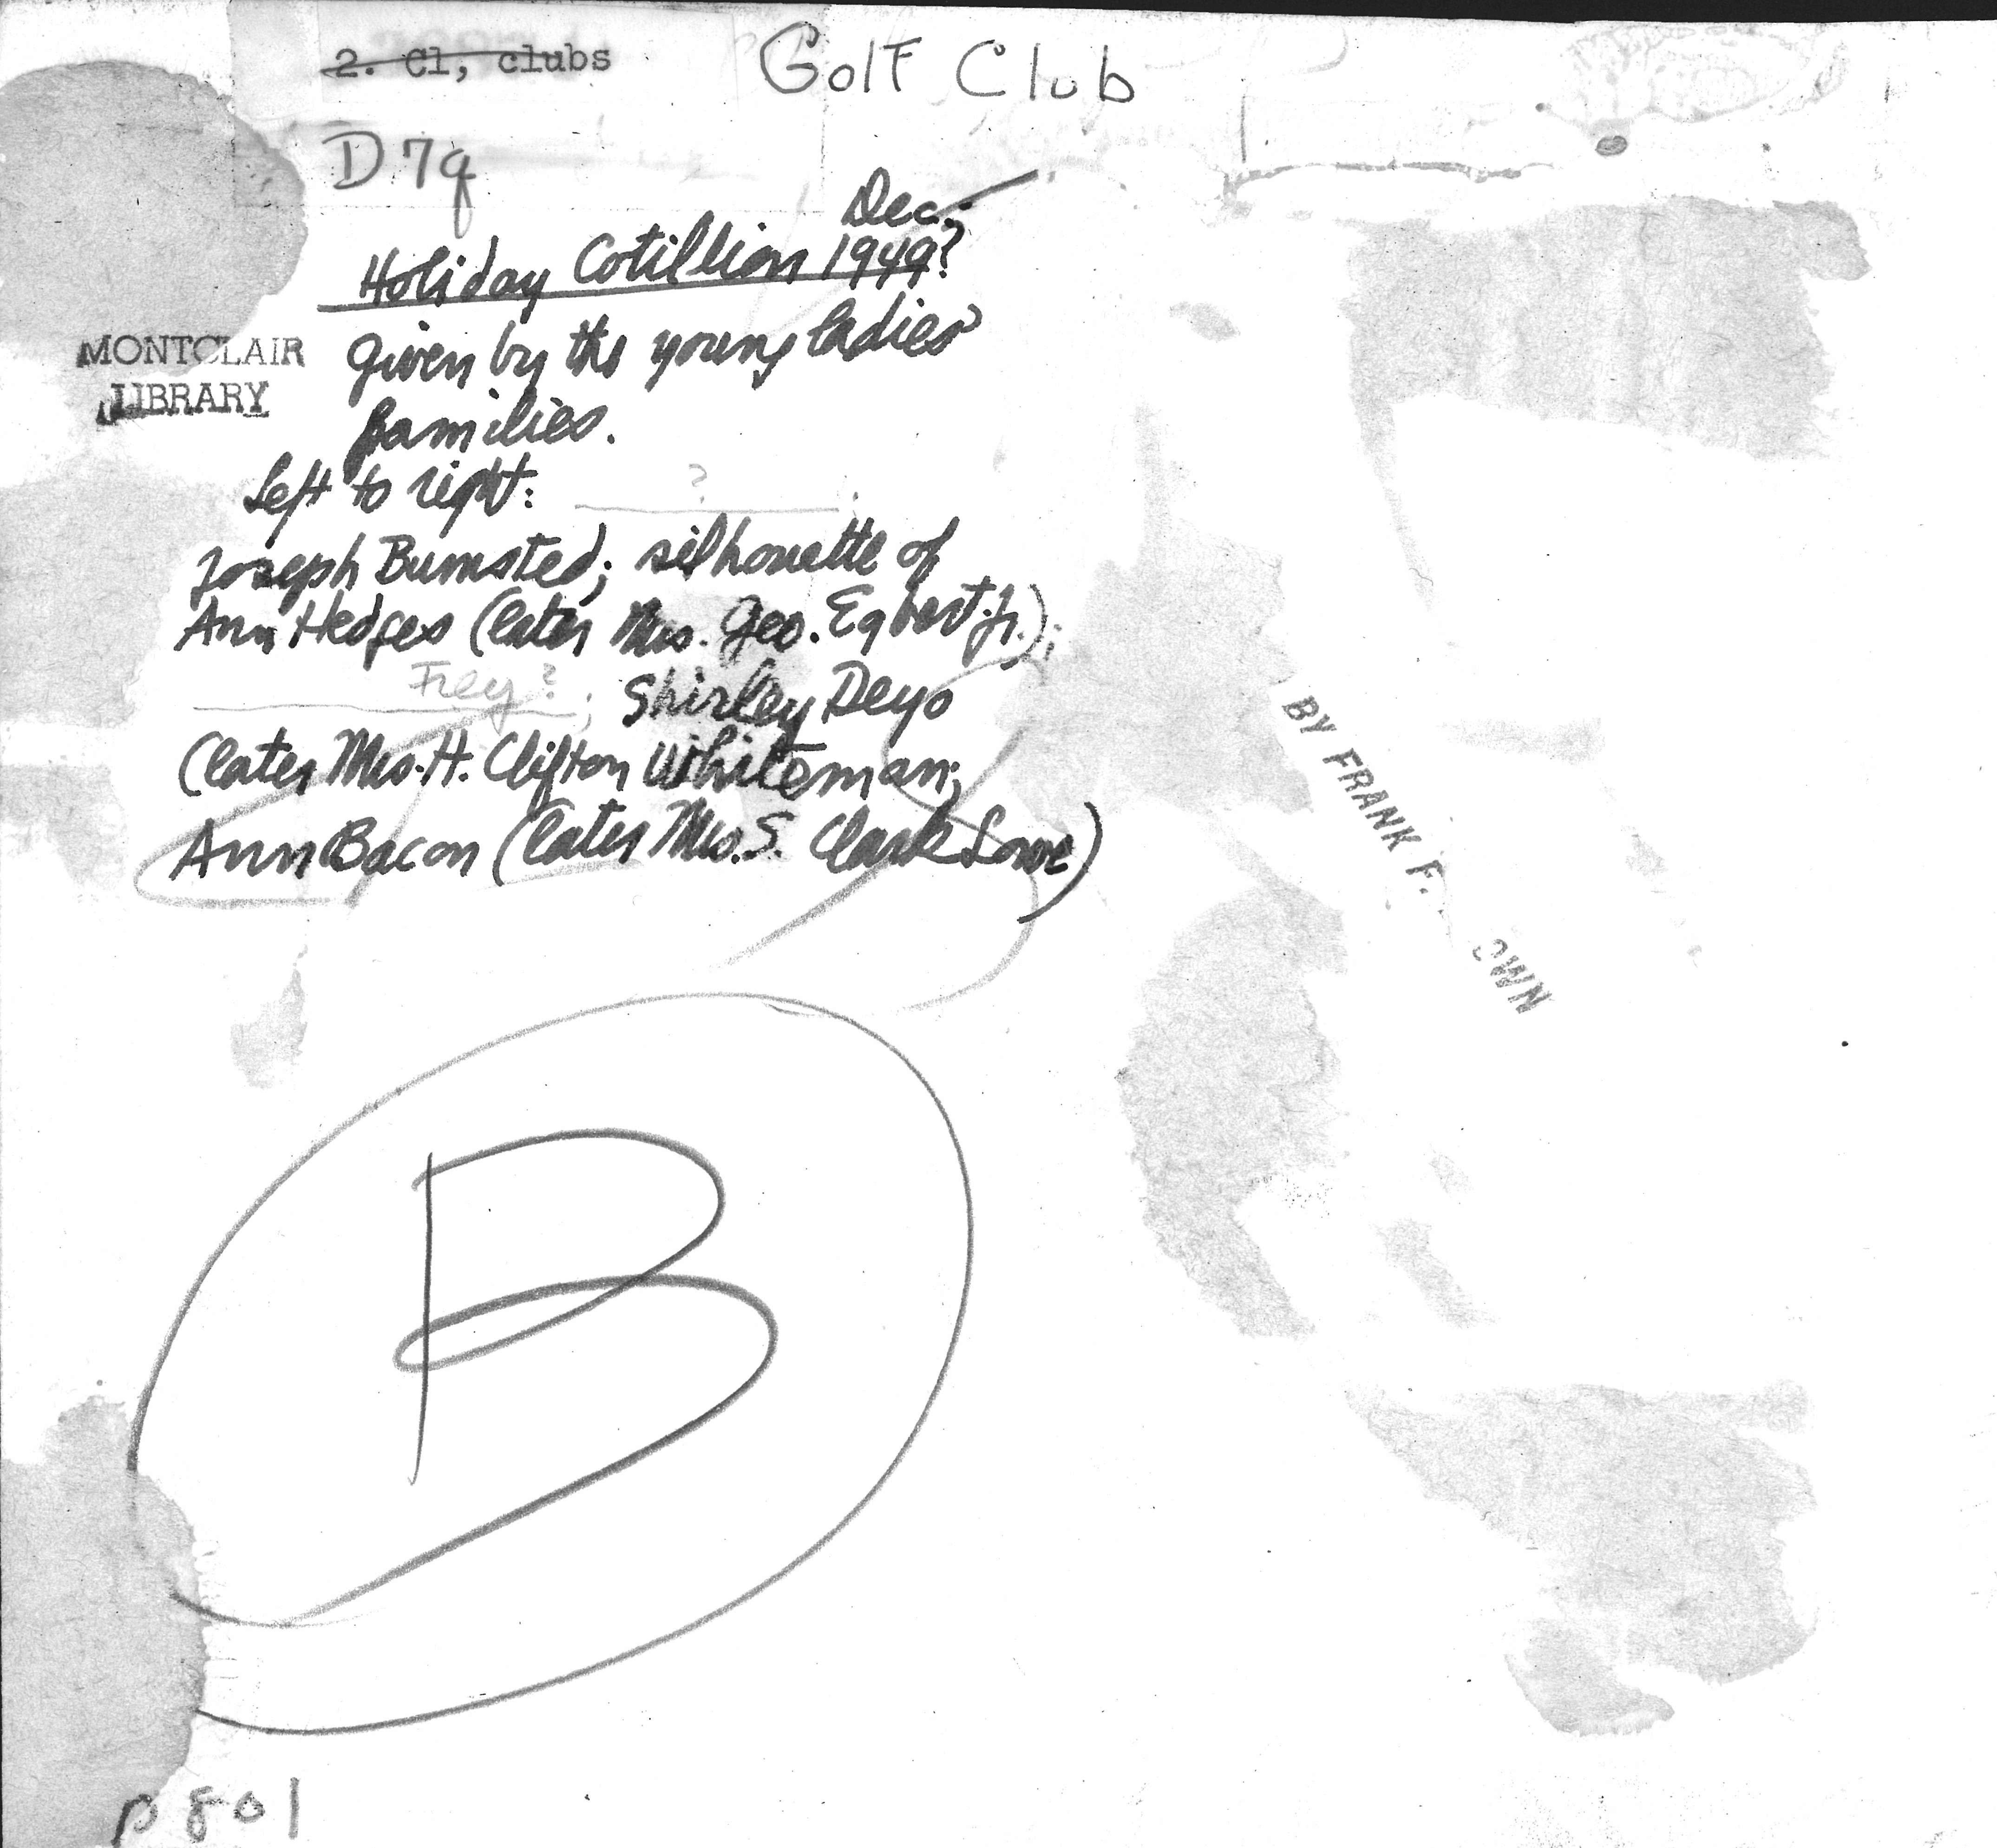 2. Cl, clubs
Golf Club
D79
Dec.
Holiday Cotillion 1949?
Given by the young ladies'
families.
Left to right: ?
Joseph Bumsted; silhouette of
Ann Hedges (later Mrs. Geo. Egbert Jr.);
Frey?; Shirley Deyo
(later Mrs. H. Clifton Whiteman;
Ann Bacon (later Mrs. S. Clark Lowe)
MONTCLAIR
LIBRARY
BY FRANK F. OWN
B
p 801